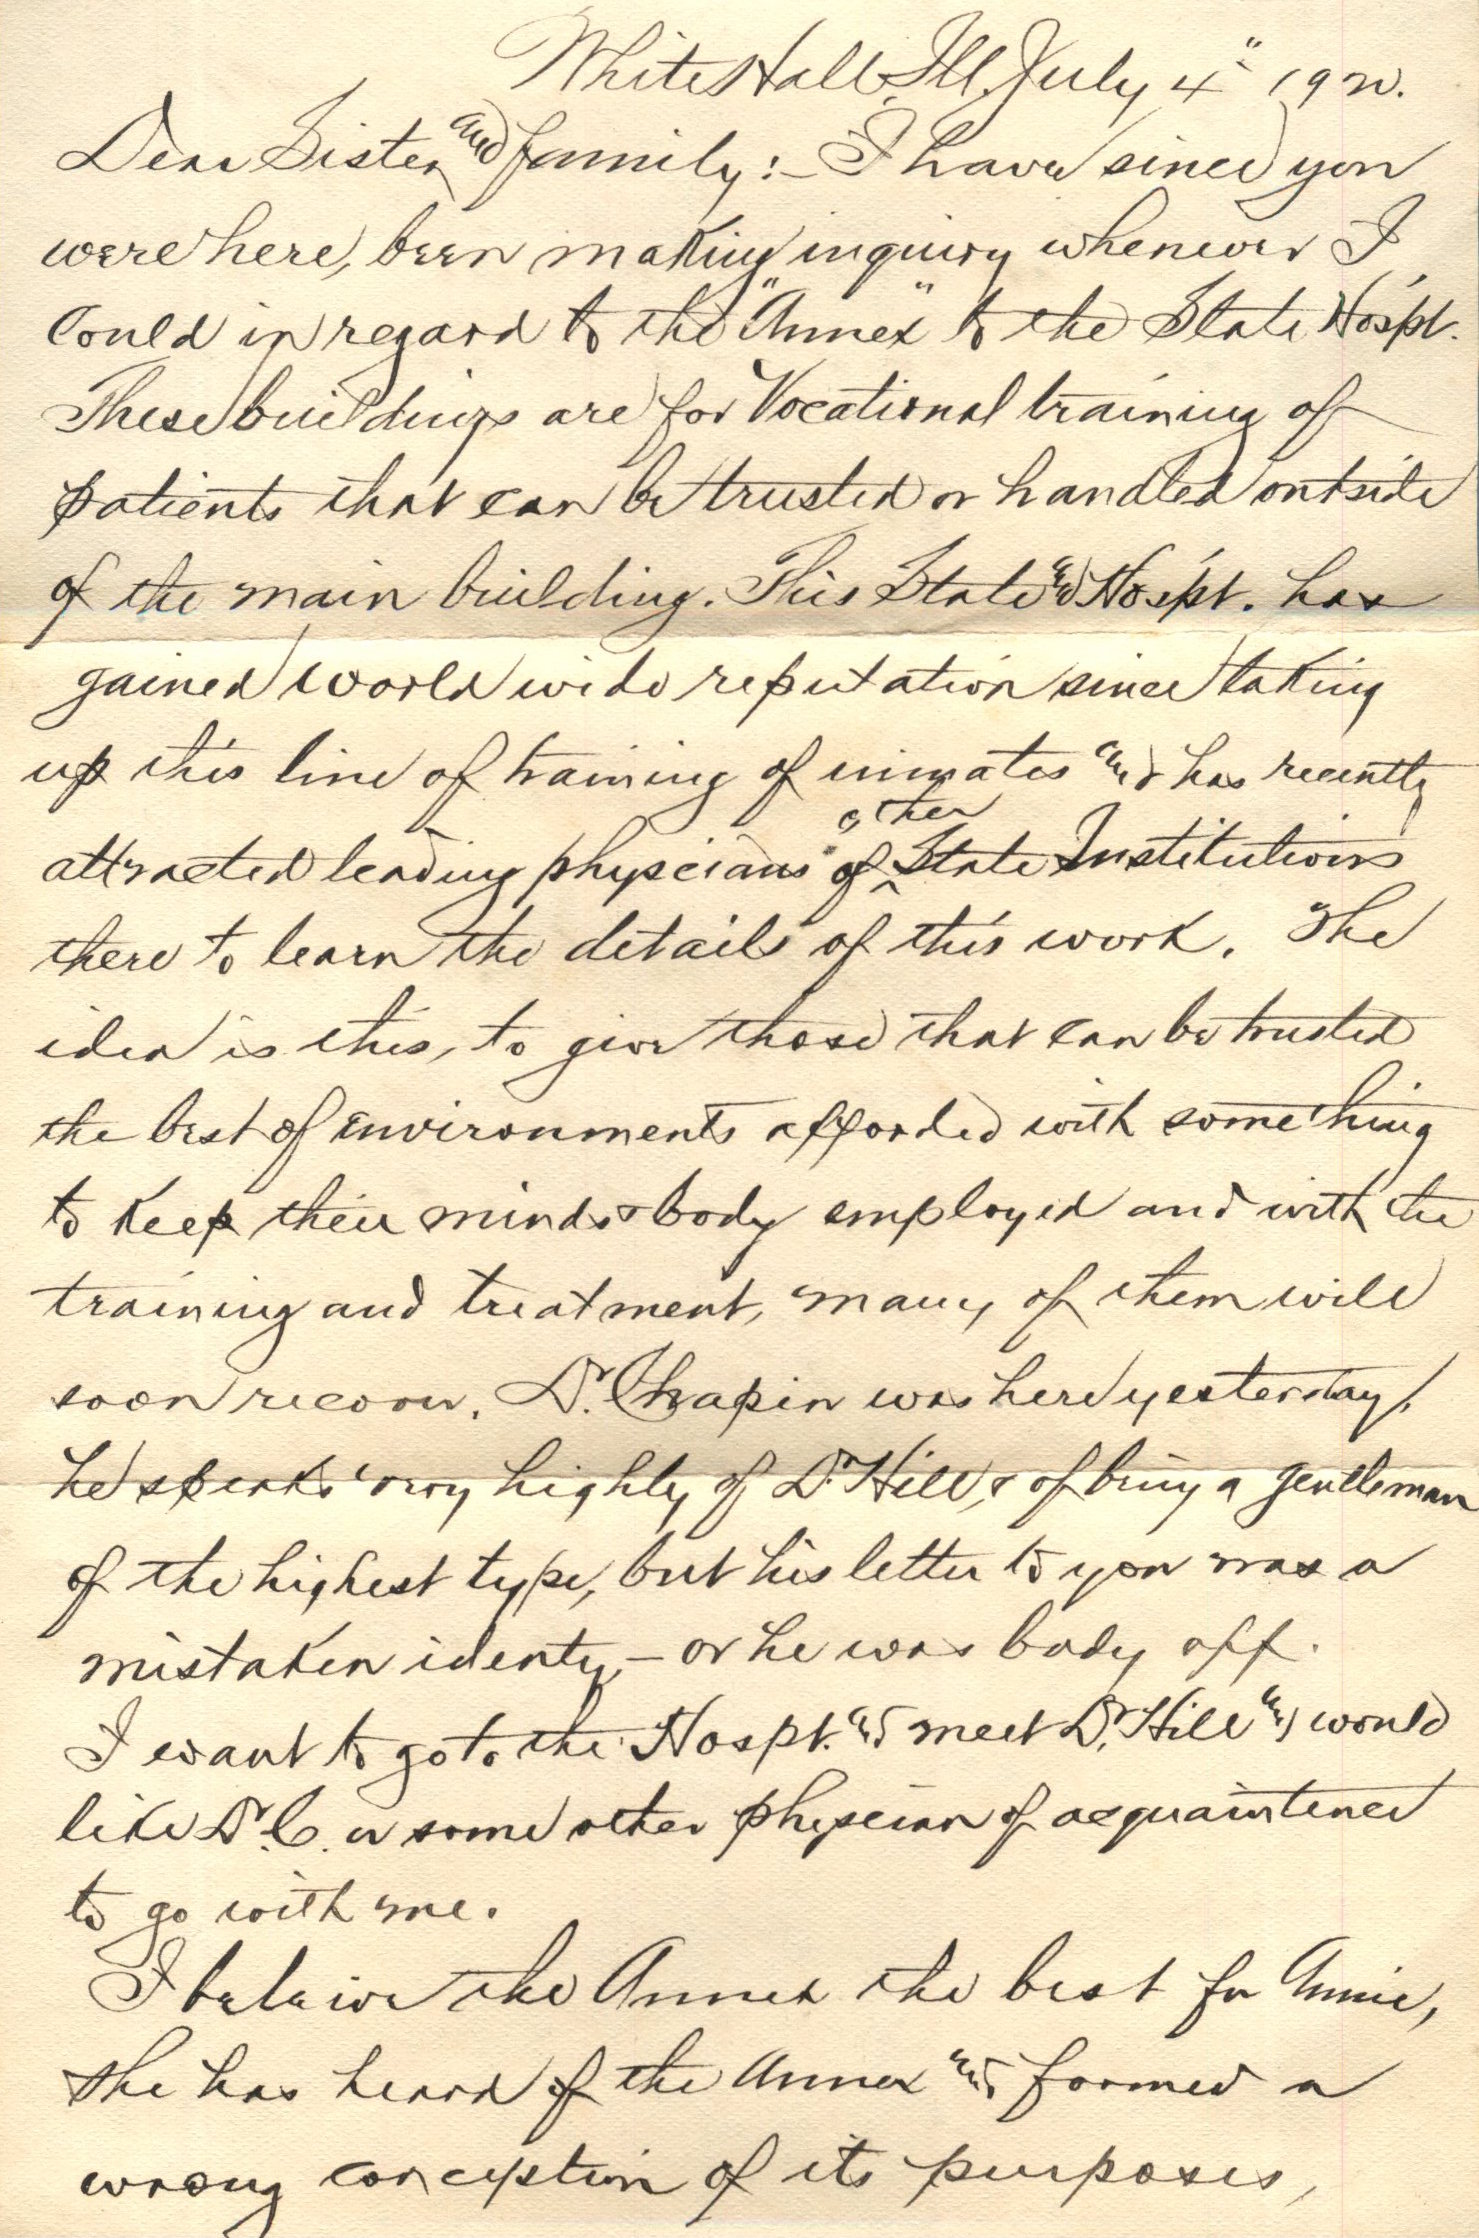 White Hall, Ill. July 4" 1920.
Dear Sister and family:- I have since you
were here, been making inquiry whenever I
could in regard to the "Annex" to the State Hospt.
These buildings are for Vocational training of
patients that can be trusted or handled outside
of the main building. This State Hospt. has
gained world wide reputation since taking
up this line of training of inmates and has recently
attracted leading physicians of other State Institutions
there to learn the details of this work. The
idea is this, to give those that can be trusted
the best of environments afforded with something
to keep their minds & body employed and with the
training and treatment, many of them will
soon recover. Dr. Chapin was here yesterday,
he speaks very highly of Dr. Hill, & of being a gentleman
of the highest type, but his letter to you was a
mistaken identy, - or he was body off.
I want to go to the Hospt. and meet Dr. Hill and would
like Dr. C. or some other physician of acquaintence
to go with me.
I beleive the Annex the best for Annie,
she has heard of the Annex and formed a
wrong conception of its purposes,